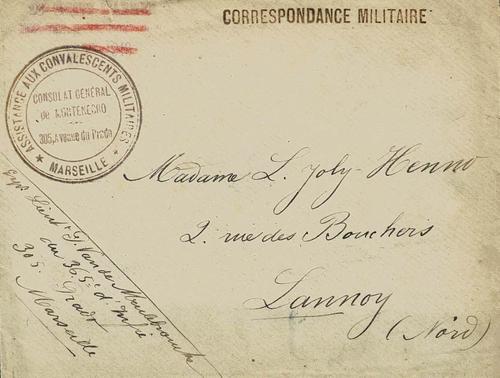 CORRESPONDANCE MILITAIRE
ASSISTANCE AUX CONVALESCENTS MILITAIRES
CONSULAT GÉNÉRAL
de MONTENEGRO
305, Avenue du Prado
★ MARSEILLE ★
Madame L. Joly-Henno
2. rue des Bouchers
Lannoy
(Nord)
Expr Lieut G. Van de
du 365e d'Infie
305. Prado
Marseille